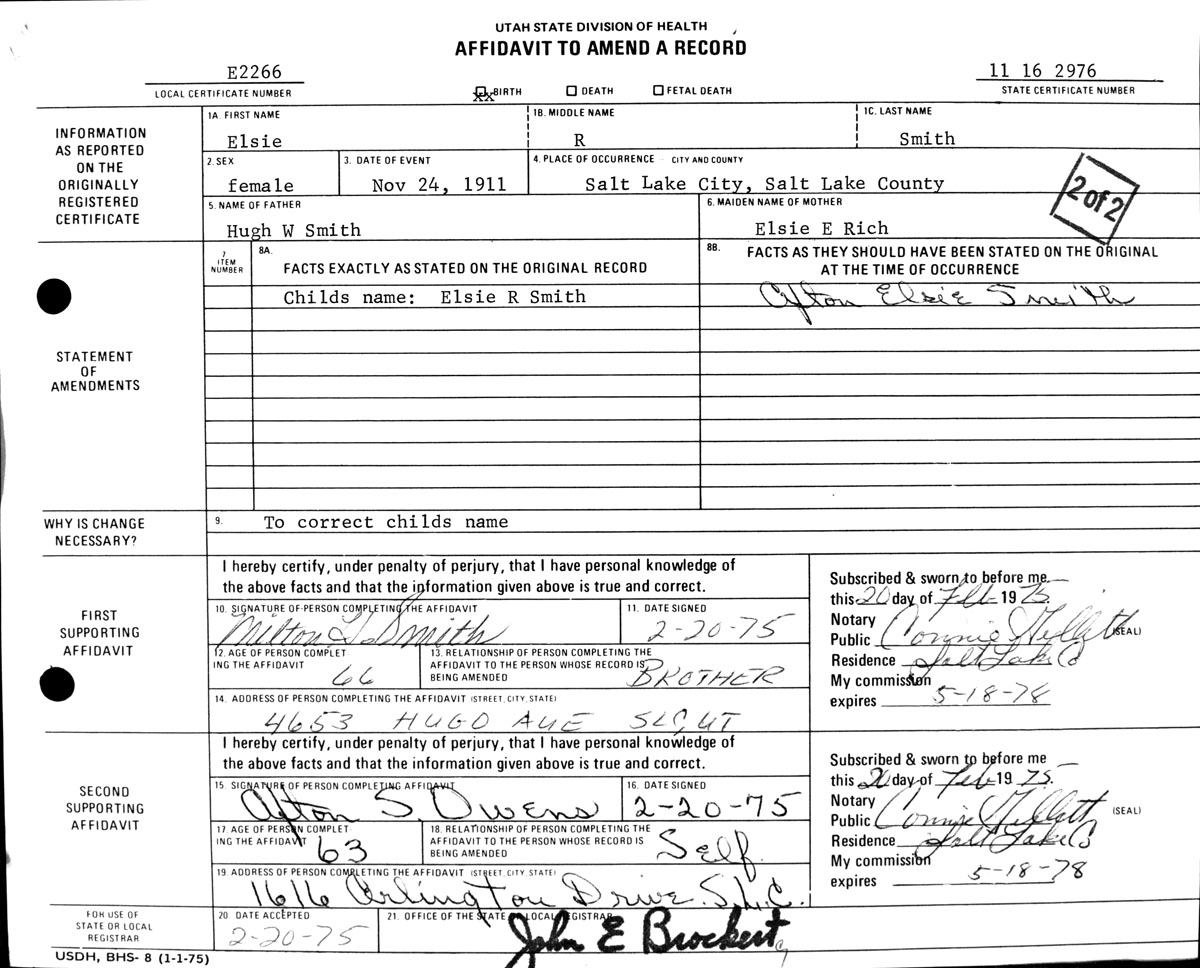 UTAH STATE DIVISION OF HEALTH
AFFIDAVIT TO AMEND A RECORD
E2266
LOCAL CERTIFICATE NUMBER
XX BIRTH
DEATH
FETAL DEATH
11 16 2976
STATE CERTIFICATE NUMBER
INFORMATION
AS REPORTED
ON THE
ORIGINALLY
REGISTERED
CERTIFICATE
1A. FIRST NAME
Elsie
1B. MIDDLE NAME
R
1C. LAST NAME
Smith
2. SEX
female
3. DATE OF EVENT
Nov 24, 1911
4. PLACE OF OCCURRENCE - CITY AND COUNTY
Salt Lake City, Salt Lake County
2 of 2
5. NAME OF FATHER
Hugh W Smith
6. MAIDEN NAME OF MOTHER
Elsie E Rich
STATEMENT
OF
AMENDMENTS
7
ITEM
NUMBER
8A.
FACTS EXACTLY AS STATED ON THE ORIGINAL RECORD
8B.
FACTS AS THEY SHOULD HAVE BEEN STATED ON THE ORIGINAL
AT THE TIME OF OCCURRENCE
Childs name: Elsie R Smith
Afton Elsie Smith
WHY IS CHANGE
NECESSARY?
9.
To correct childs name
FIRST
SUPPORTING
AFFIDAVIT
I hereby certify, under penalty of perjury, that I have personal knowledge of
the above facts and that the information given above is true and correct.
10. SIGNATURE OF PERSON COMPLETING THE AFFIDAVIT
Milton Smith
11. DATE SIGNED
2-20-75
12. AGE OF PERSON COMPLET
ING THE AFFIDAVIT
66
13. RELATIONSHIP OF PERSON COMPLETING THE
AFFIDAVIT TO THE PERSON WHOSE RECORD IS
BEING AMENDED
BROTHER
14. ADDRESS OF PERSON COMPLETING THE AFFIDAVIT (STREET, CITY, STATE)
4653 HUGO AVE SLC, UT
Subscribed & sworn to before me
this 20 day of Feb 19 75
Notary
Public Connie (SEAL)
Residence Salt Lake Co
My commission
expires 5-18-78
SECOND
SUPPORTING
AFFIDAVIT
I hereby certify, under penalty of perjury, that I have personal knowledge of
the above facts and that the information given above is true and correct.
15. SIGNATURE OF PERSON COMPLETING AFFIDAVIT
Afton S. Owens
16. DATE SIGNED
2-20-75
17. AGE OF PERSON COMPLET
ING THE AFFIDAVIT
63
18. RELATIONSHIP OF PERSON COMPLETING THE
AFFIDAVIT TO THE PERSON WHOSE RECORD IS
BEING AMENDED
Self.
19. ADDRESS OF PERSON COMPLETING THE AFFIDAVIT (STREET, CITY, STATE)
1616 Arlington Drive. S.L.C.
Subscribed & sworn to before me
this 20 day of Feb 19 75.
Notary
Public Connie (SEAL)
Residence Salt Lake Co
My commission
expires 5-18-78
FOR USE OF
STATE OR LOCAL
REGISTRAR
20. DATE ACCEPTED
2-20-75
21. OFFICE OF THE STATE OR LOCAL REGISTRAR
John E Brockert
USDH, BHS- 8 (1-1-75)